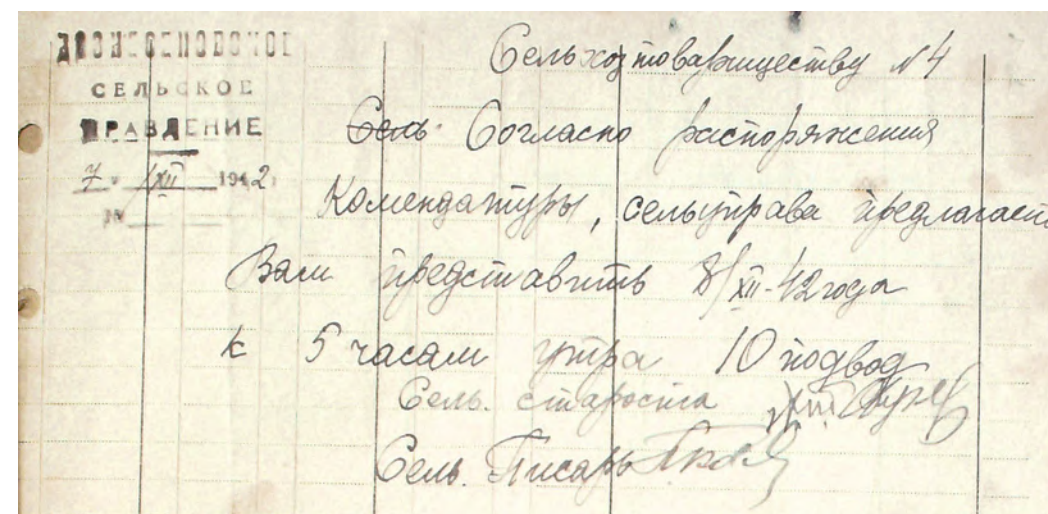 СЕЛЬСКОЕ
ПРАВДЕНИЕ
7 " /XII 1942
№
Сельхозтовариществу №4
Сель. Согласно распоряжения
Комендатуры, сельуправа предлагает
Вам представить 8/XII-42 года
к 5 часам утра 10 подвод
Сель. староста
Сель. Писарь